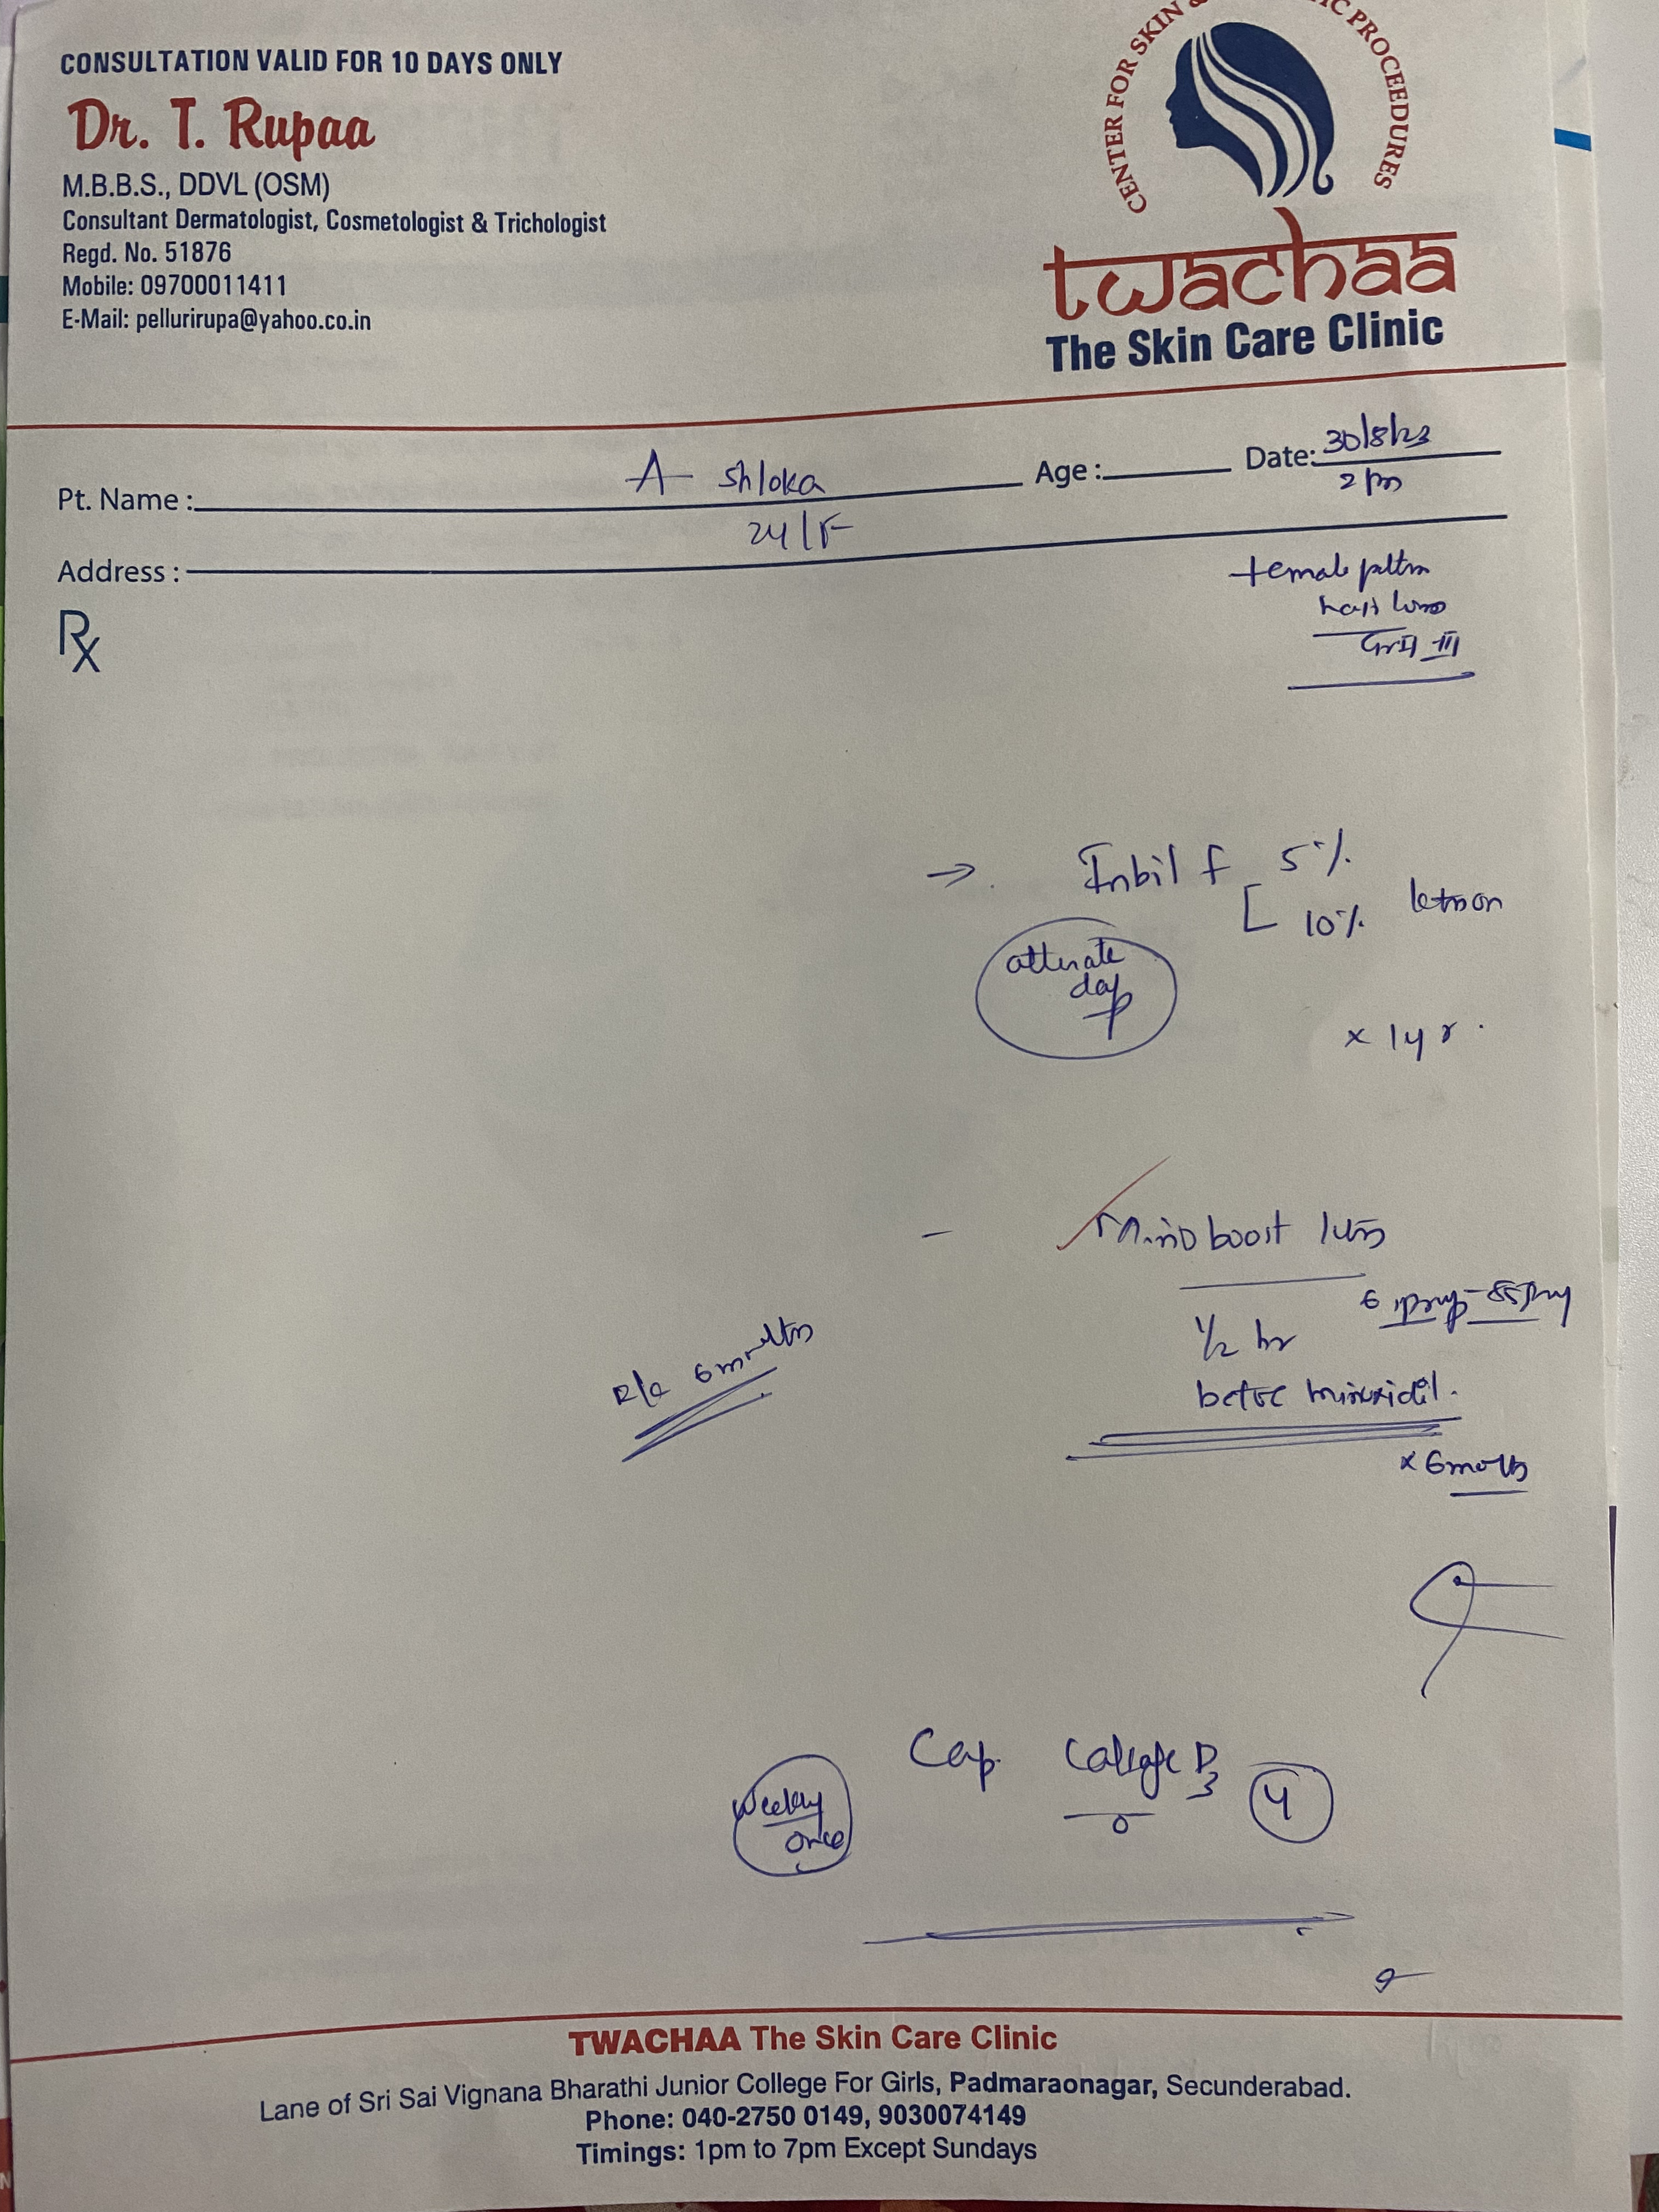 CONSULTATION VALID FOR 10 DAYS ONLY
Dr. T. Rupaa
M.B.B.S., DDVL (OSM)
Consultant Dermatologist, Cosmetologist & Trichologist
Regd. No. 51876
Mobile: 09700011411
E-Mail: pellurirupa@yahoo.co.in
CENTER FOR SKIN & IC PROCEEDURES
twachaa
The Skin Care Clinic
Pt. Name : A Shloka Age : Date: 30/8/23
2 pm
24/F
Address :
Female pattern
hair loss
Gr II III
Rx
→ f 5%
[ 10% lotion
alternate
day
x 1 yr.
- Minoboost
1/2 hr
before minoxidil.
R/a 6 months
x 6 months
Cap. D3 4
weekly
once
TWACHAA The Skin Care Clinic
Lane of Sri Sai Vignana Bharathi Junior College For Girls, Padmaraonagar, Secunderabad.
Phone: 040-2750 0149, 9030074149
Timings: 1pm to 7pm Except Sundays